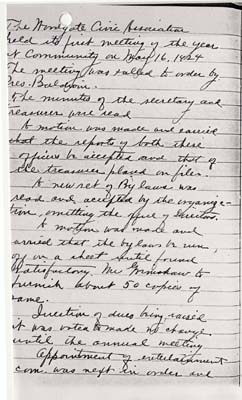 The Woodgate Civic Association
held its first meeting of the year
at Community on May 16, 1924
The meeting was called to order by
Pres. Baldwin.
The minutes of the secretary and
treasurer were read
A motion was made and carried
that the reports of both these
officers be accepted and that of
the treasurer placed on file.
A new set of By laws was
read and accepted by the organiza-
tion, omitting the office of Directors.
A motion was made and
carried that the by laws be run
off on a sheet until found
satisfactory. Mr Grimshaw to
furnish about 50 copies of
same.
Question of dues being raised
it was voted to made no change
until the annual meeting
Appointment of entertainment
com. was next in order and